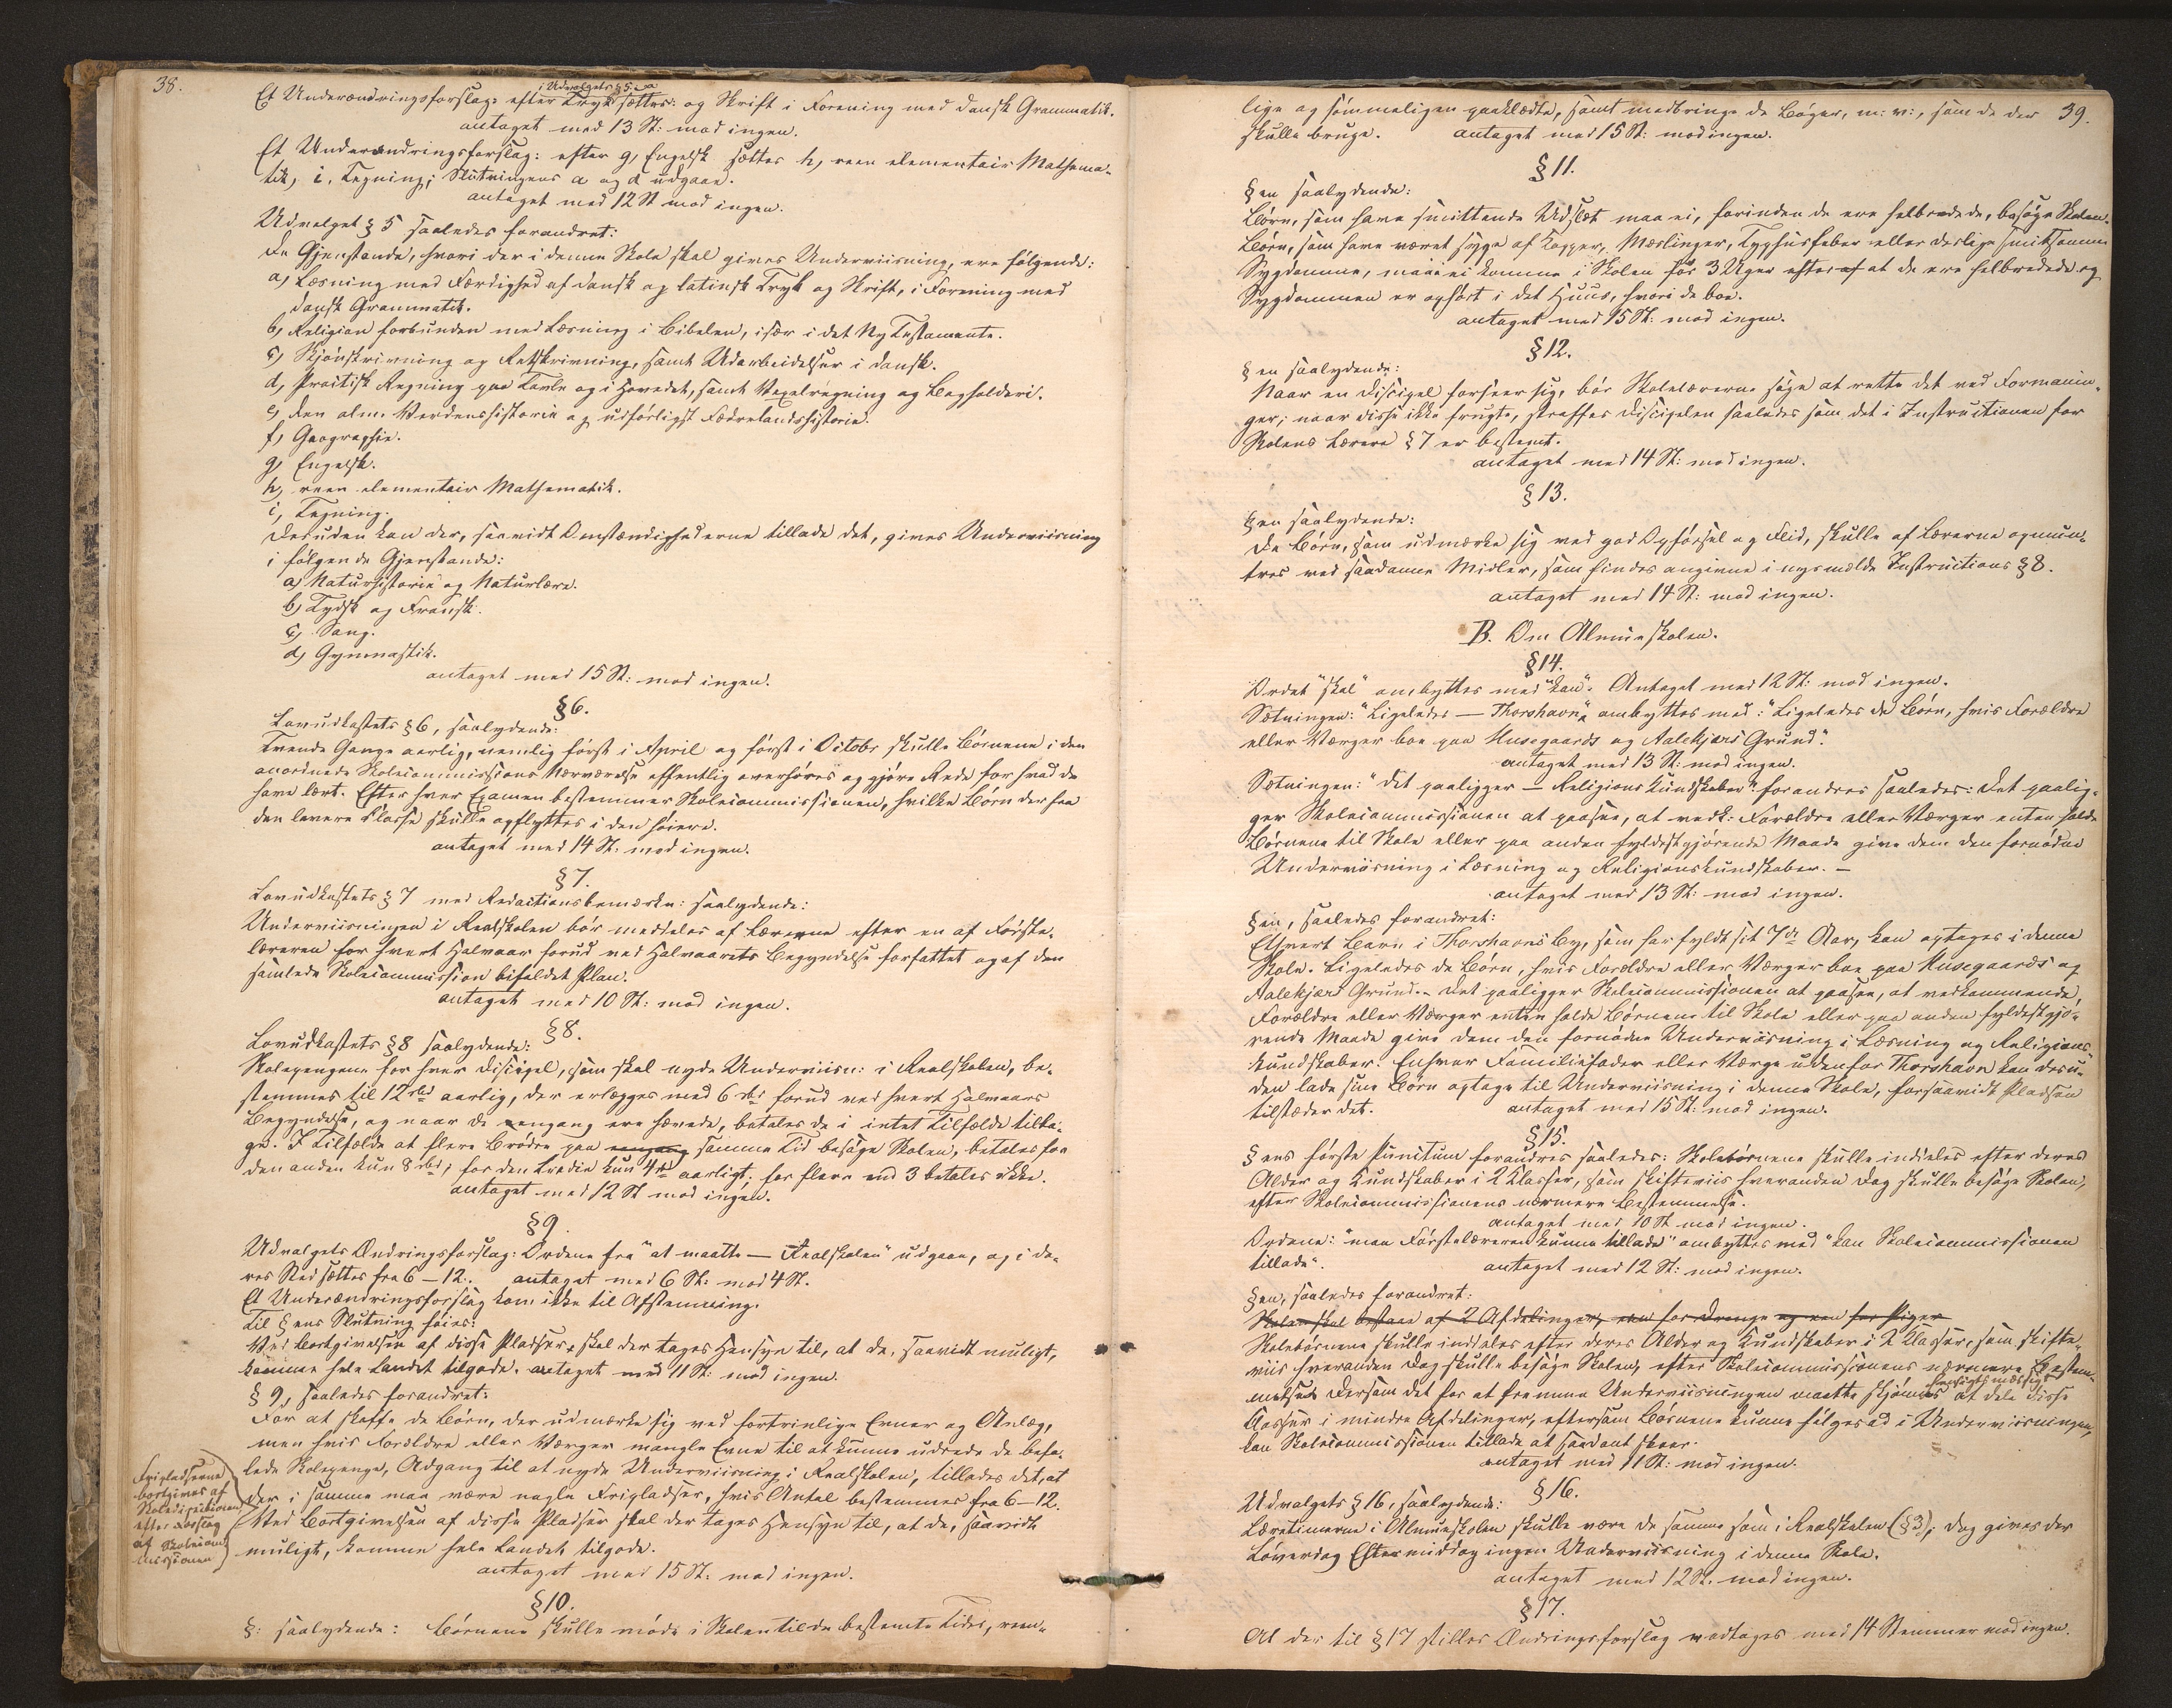 38.
i Udvalgets § 5. a
Et Underændringsforslag: efter Tryk sættes: og Skrift i Forening med dansk Grammatik.
antaget med 13 St: mod ingen.
Et Underændringsforslag: efter g, Engelsk sættes h, reen elementair Mathema-
tik, i, Tegning; Slutningens a og d udgaae.
antaget med 12 St mod ingen.
Udvalget § 5 saaledes forandret:
De Gjenstande, hvori der i denne Skole skal gives Underviisning, ere følgende:
a, Læsning med Færdighed af dansk og latinsk Tryk og Skrift, i Forening med
dansk Grammatik.
b, Religion forbunden med Læsning i Bibelen, især i det Ny Testamente.
c, Skjønskrivning og Retskrivning, samt Udarbeidelser i dansk.
d, Practisk Regning paa Tavle og i Hovedet, samt Vexelregning og Bogholderi.
e, den alm. Verdenshistorie og udførligst Fædrelandshistorie.
f, Geographie.
g, Engelsk.
h, reen elementair Mathematik.
i, Tegning.
Desuden kan der, saavidt Omstændighederne tillade det, gives Underviisning
i følgende Gjenstande:
a, Naturhistorie og Naturlære.
b, Tydsk og Fransk.
c, Sang.
d, Gymnastik.
antaget med 15 St: mod ingen.
§ 6.
Lovudkastets § 6, saalydende:
Tvende Gange aarlig, nemlig først i April og først i Octobr skulle Børnene i den
anordnede Skolecommissions Nærværelse offentlig overhøres og gjøre Rede for hvad de
have lært. Efter hver Examen bestemmer Skolecommissionen, hvilke Børn der fra
den lavere Classe skulle opflyttes i den høiere.
antaget med 14 St: mod ingen.
§ 7.
Lovudkastets § 7 med Redactionsbemærkn: saalydende:
Underviisningen i Realskolen bør meddeles af Lærerne efter en af Første-
læreren for hvert Halvaar forud ved Halvaarets Begyndelse forfattet og af den
samlede Skolecommission bifaldet Plan.
antaget med 10 St: mod ingen.
§ 8.
Lovudkastets § 8 saalydende:
Skolepengene for hver Discipel, som skal nyde Underviisn: i Realskolen, be-
stemmes til 12 rbd aarlig, der erlægges med 6 rbd forud ved hvert Halvaars
Begyndelse, og naar de engang ere hævede, betales de i intet Tilfælde tilba-
ge. I Tilfælde at flere Brødre paa engang samme Tid besøge Skolen, betales for
den anden kun 8 rbd, for den tredie kun 4 rd aarligt; for flere end 3 betales ikke.
antaget med 12 St mod ingen.
§ 9.
Udvalgets Ændringsforslag: Ordene fra "at maatte — Realskolen" udgaae, og i de-
res Sted sættes fra 6 – 12. antaget med 6 St: mod 4 St.
Et Underændringsforslag kom ikke til Afstemning.
Til § ens Slutning føies:
Ved Bortgivelsen af disse Pladser, skal der tages Hensyn til, at de, saavidt muligt,
komme hele Landet tilgode. antaget med 11 St: mod ingen.
§ 9, saaledes forandret:
For at skaffe de Børn, der udmærke sig ved fortrinlige Evner og Anlæg,
men hvis Forældre eller Værger mangle Evne til at kunne udrede de befa-
lede Skolepenge, Adgang til at nyde Underviisning i Realskolen, tillades det, at
der i samme maa være nogle Fripladser, hvis Antal bestemmes fra 6 – 12.
Ved Bortgivelsen af disse Pladser skal der tages Hensyn til, at de, saavidt
muligt, komme hele Landet tilgode.
Fripladserne
bortgives af
Skoledirectionen
efter Forslag
af Skolecom-
missionen
antaget med 15 St: mod ingen.
§ 10.
§: saalydende: Børnene skulle møde i Skolen til de bestemte Tider, reen-
39.
lige og sømmeligen paaklædte, samt medbringe de Bøger, m: v:, som de der
skulle bruge. antaget med 15 St: mod ingen.
§ 11.
§ en saalydende:
Børn, som have smittende Udslæt maa ei, forinden de ere helbredede, besøge Skolen.
Børn, som have været syge af Kopper, Mæslinger, Typhusfeber eller deslige smitsomme
Sygdomme, maae ei komme i Skolen før 3 Uger efter af at de ere helbredede og
Sygdommen er ophørt i det Huus, hvori de boe.
antaget med 15 St: mod ingen.
§ 12.
§ en saalydende:
Naar en Discipel forseer sig, bør Skolelærerne søge at rette det ved Formanin-
ger; naar disse ikke frugte, straffes Disciplen saaledes som det i Instructionen for
Skolens Lærere § 7 er bestemt.
antaget med 14 St: mod ingen.
§ 13.
§ en saalydende:
De Børn, som udmærke sig ved god Opførsel og Flid, skulle af Lærerne opmun-
tres ved saadanne Midler, som findes angivne i nysmeldte Instructions § 8.
antaget med 14 St: mod ingen.
B. Om Almueskolen.
§ 14.
Ordet "skal" ombyttes med "kan". Antaget med 12 St: mod ingen.
Sætningen: "Ligeledes — Thorshavn" ombyttes med: "Ligeledes de Børn, hvis Forældre
eller Værger boe paa Husegaards og Aalekjærs Grund".
antaget med 13 St: mod ingen.
Sætningen: "det paaligger — Religionskundskaber" forandres saaledes: Det paalig-
ger Skolecommissionen at paasee, at vedk: Forældre eller Værger enten holde
Børnene til Skole eller paa anden fyldestgjørende Maade give dem den fornødne
Underviisning i Læsning og Religionskundskaber. –
antaget med 13 St: mod ingen.
§ en, saaledes forandret:
Ethvert Barn i Thorshavns By, som har fyldt sit 7de Aar, kan optages i denne
Skole. Ligeledes de Børn, hvis Forældre eller Værger boe paa Husegaards og
Aalekjærs Grund. – Det paaligger Skolecommissionen at paasee, at vedkommende
Forældre eller Værger enten holde Børnene til Skole eller paa anden fyldestgjø-
rende Maade give dem den fornødne Underviisning i Læsning og Religions-
kundskaber. Enhver Familiefader eller Værge udenfor Thorshavn kan desu-
den lade sine Børn optage til Underviisning i denne Skole, forsaavidt Pladsen
tilsteder det. antaget med 15 St: mod ingen.
§ 15.
§ ens første Punctum forandres saaledes: Skolebørnene skulle inddeles efter deres
Alder og Kundskaber i 2 Klasser, som skifteviis hveranden Dag skulle besøge Skolen,
efter Skolecommissionens nærmere Bestemmelse.
antaget med 10 St mod ingen.
Ordene: "maa Førstelæreren kunne tillade" ombyttes med "kan Skolecommissionen
tillade". antaget med 12 St: mod ingen.
§ en, saaledes forandret:
Skolen skal bestaae af 2 Afdelinger, een for Drenge og een for Piger
Skolebørnene skulle inddeles efter deres Alder og Kundskaber i 2 Klasser, som skifte-
viis hveranden Dag skulle besøge Skolen, efter Skolecommissionens nærmere Bestem-
hensigtsmæssigt
melse. Dersom det for at fremme Underviisningen maatte skjønnes at dele disse
Classer i mindre Afdelinger, eftersom Børnene kunne følges ad i Underviisningen,
kan Skolecommissionen tillade at saadant skeer.
antaget med 11 St: mod ingen.
§ 16.
Udvalgets § 16, saalydende:
Læretimerne i Almueskolen skulle være de samme som i Realskolen (§ 3); dog gives der
Løverdag Eftermiddag ingen Underviisning i denne Skole.
antaget med 12 St. mod ingen.
§ 17.
Al der til § 17 stilles Ændringsforslag modtages med 14 Stemmer mod ingen.